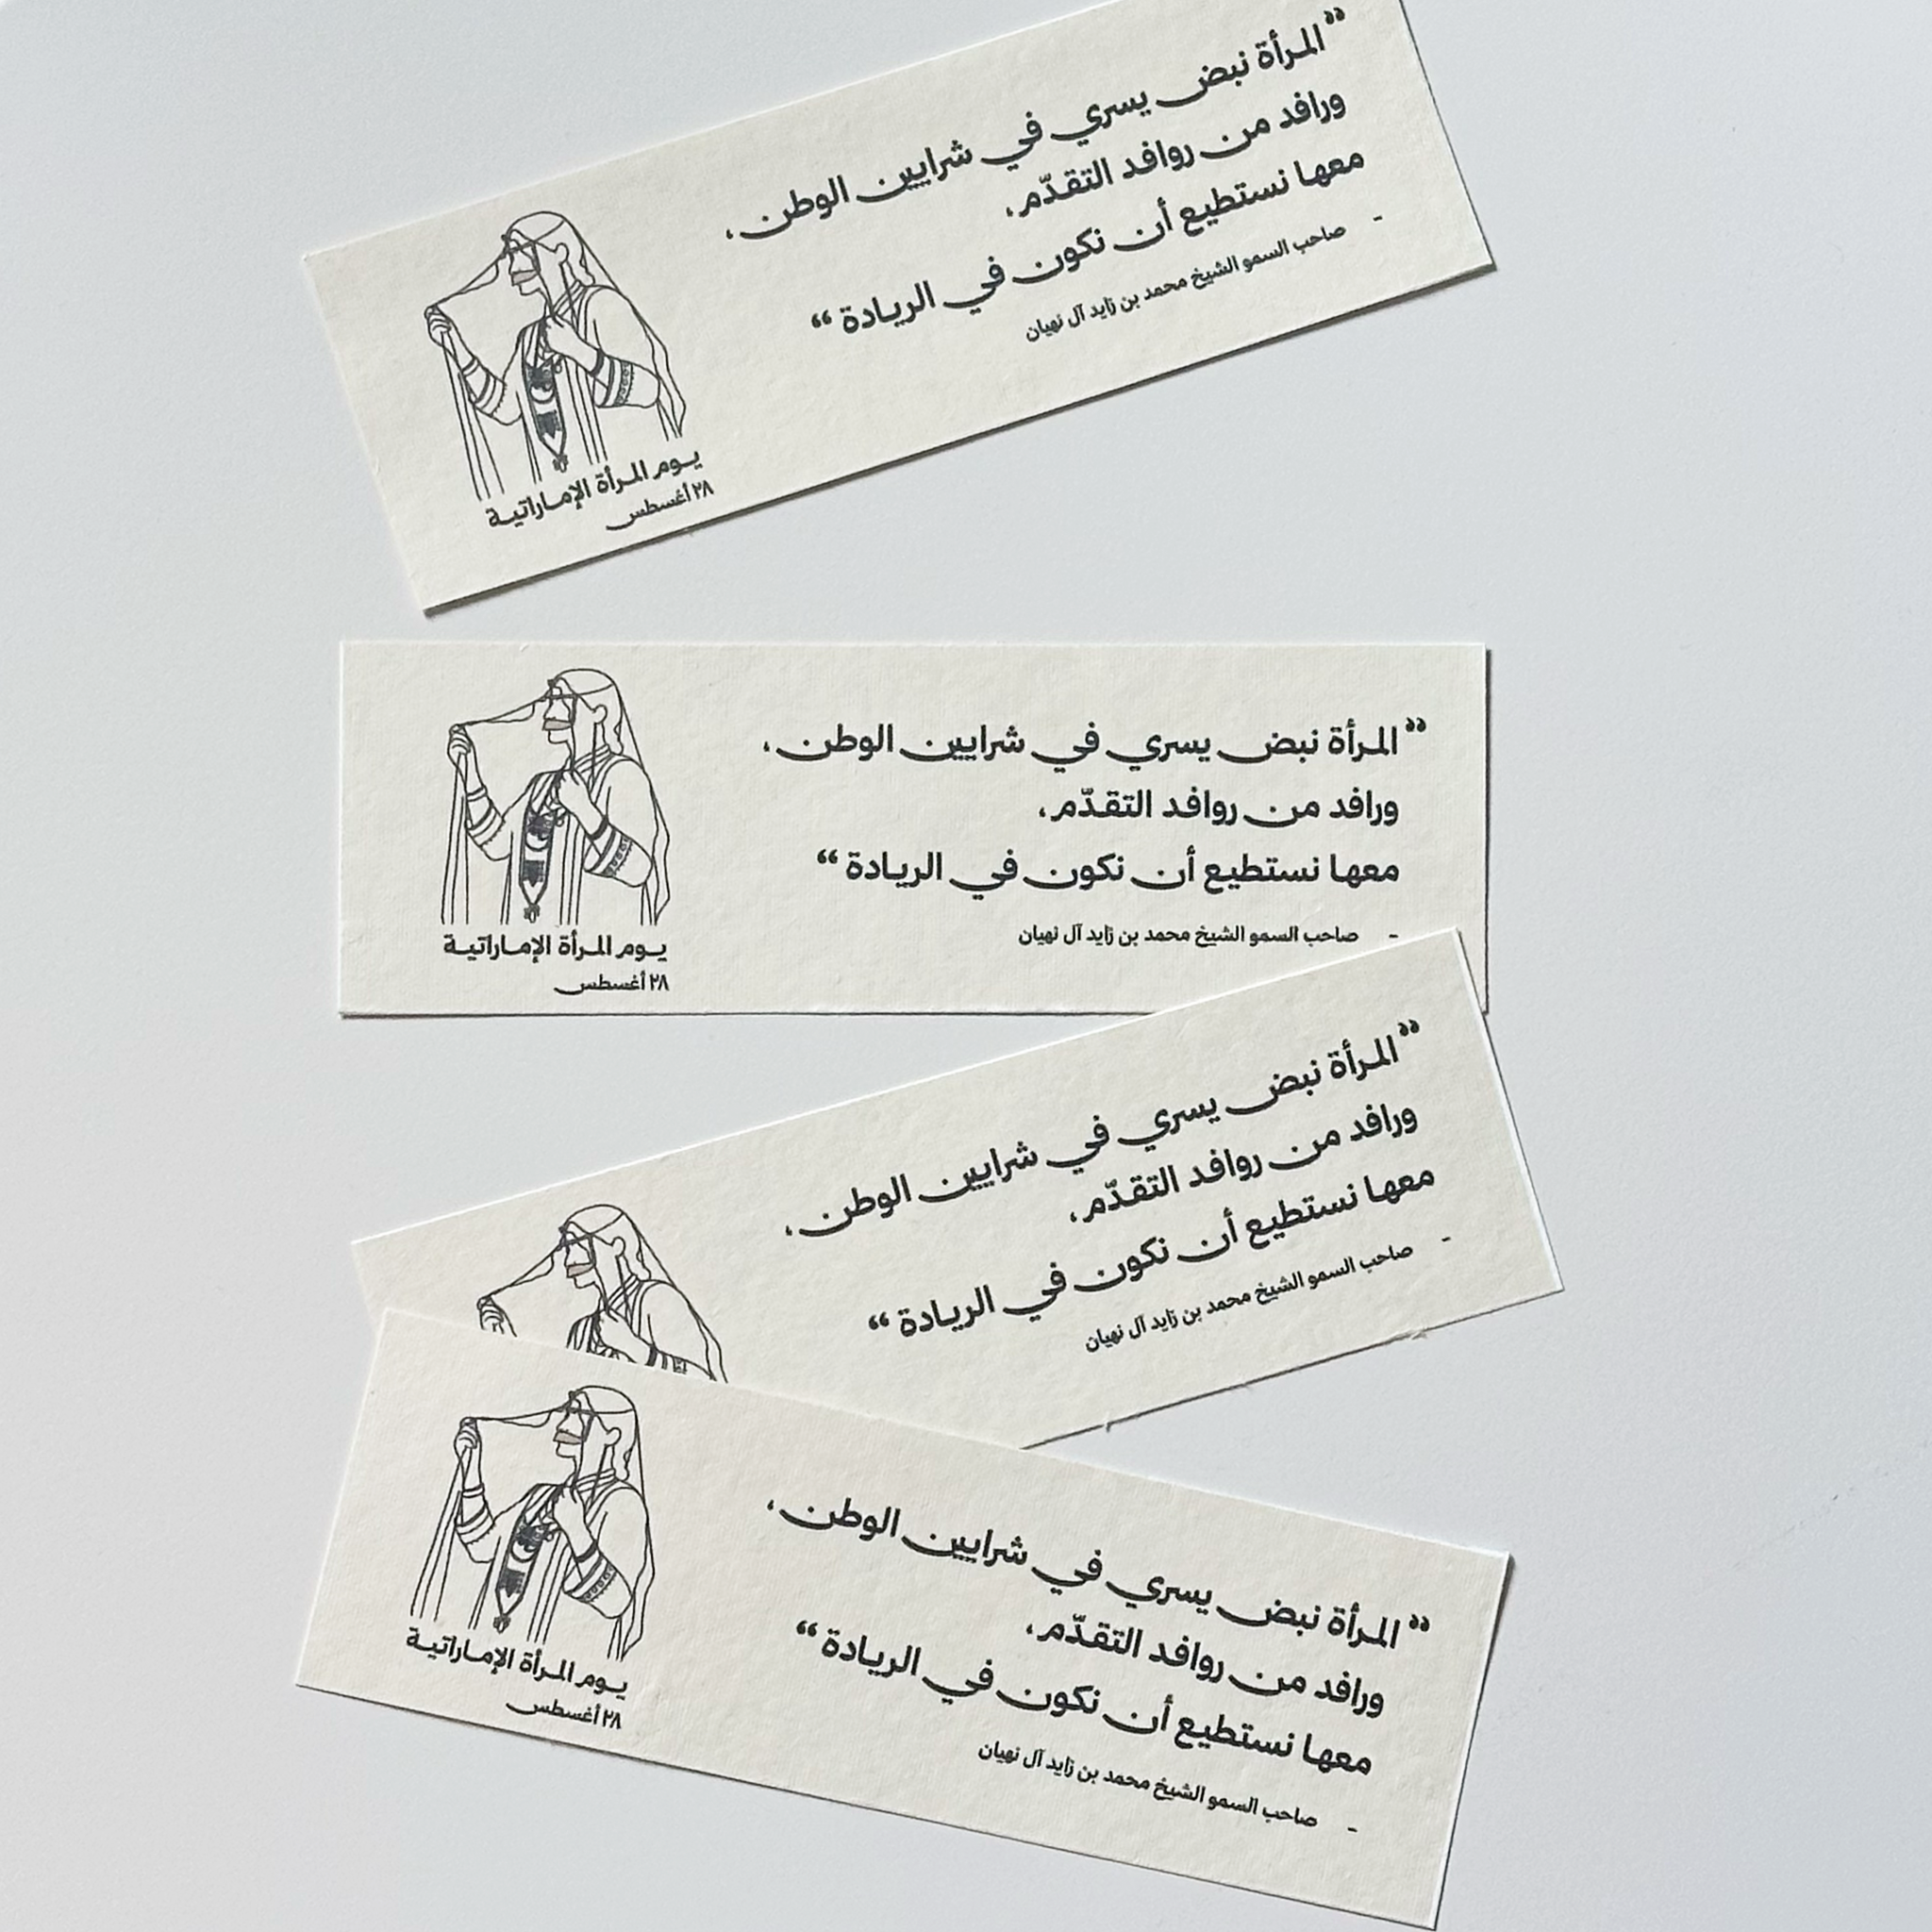 ”المرأة نبض يسري في شرايين الوطن،
ورافد من روافد التقدّم،
معها نستطيع أن نكون في الريادة“
- صاحب السمو الشيخ محمد بن زايد آل نهيان
يوم المرأة الإماراتية
٢٨ أغسطس
”المرأة نبض يسري في شرايين الوطن،
ورافد من روافد التقدّم،
معها نستطيع أن نكون في الريادة“
- صاحب السمو الشيخ محمد بن زايد آل نهيان
يوم المرأة الإماراتية
٢٨ أغسطس
”المرأة نبض يسري في شرايين الوطن،
ورافد من روافد التقدّم،
معها نستطيع أن نكون في الريادة“
- صاحب السمو الشيخ محمد بن زايد آل نهيان
”المرأة نبض يسري في شرايين الوطن،
ورافد من روافد التقدّم،
معها نستطيع أن نكون في الريادة“
- صاحب السمو الشيخ محمد بن زايد آل نهيان
يوم المرأة الإماراتية
٢٨ أغسطس